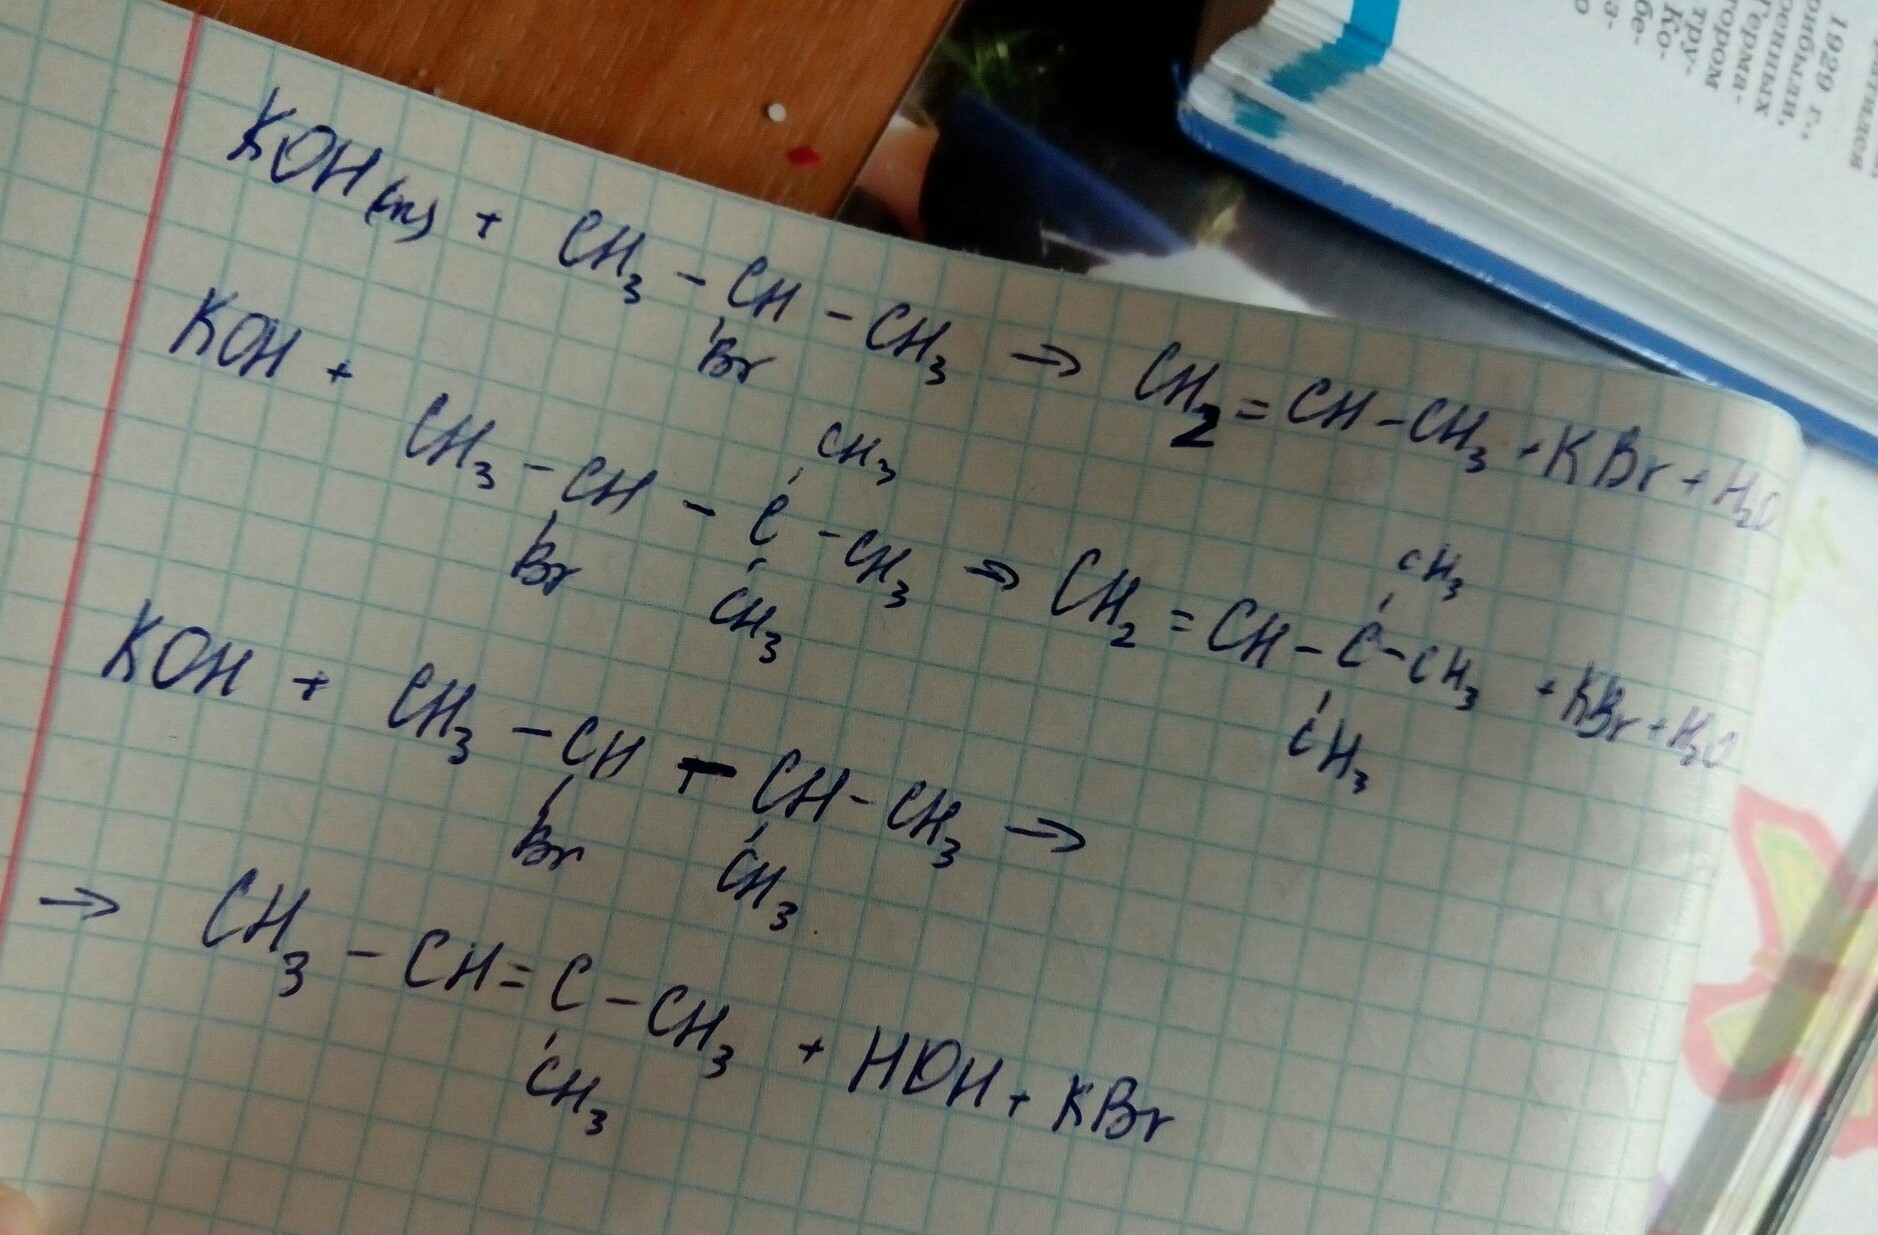 KOH(сп) + CH3 - CH - CH3 → CH2 = CH - CH3 + KBr + H2O
Br
CH3 CH3
KOH + CH3 - CH - C - CH3 → CH2 = CH - C - CH3 + KBr + H2O
Br CH3 CH3
KOH + CH3 - CH - CH - CH3 →
Br CH3
→ CH3 - CH = C - CH3 + HOH + KBr
CH3
1929 г.,
рибыли,
оенных
Герма-
тором
тру-
Ко-
бе-
з-
о